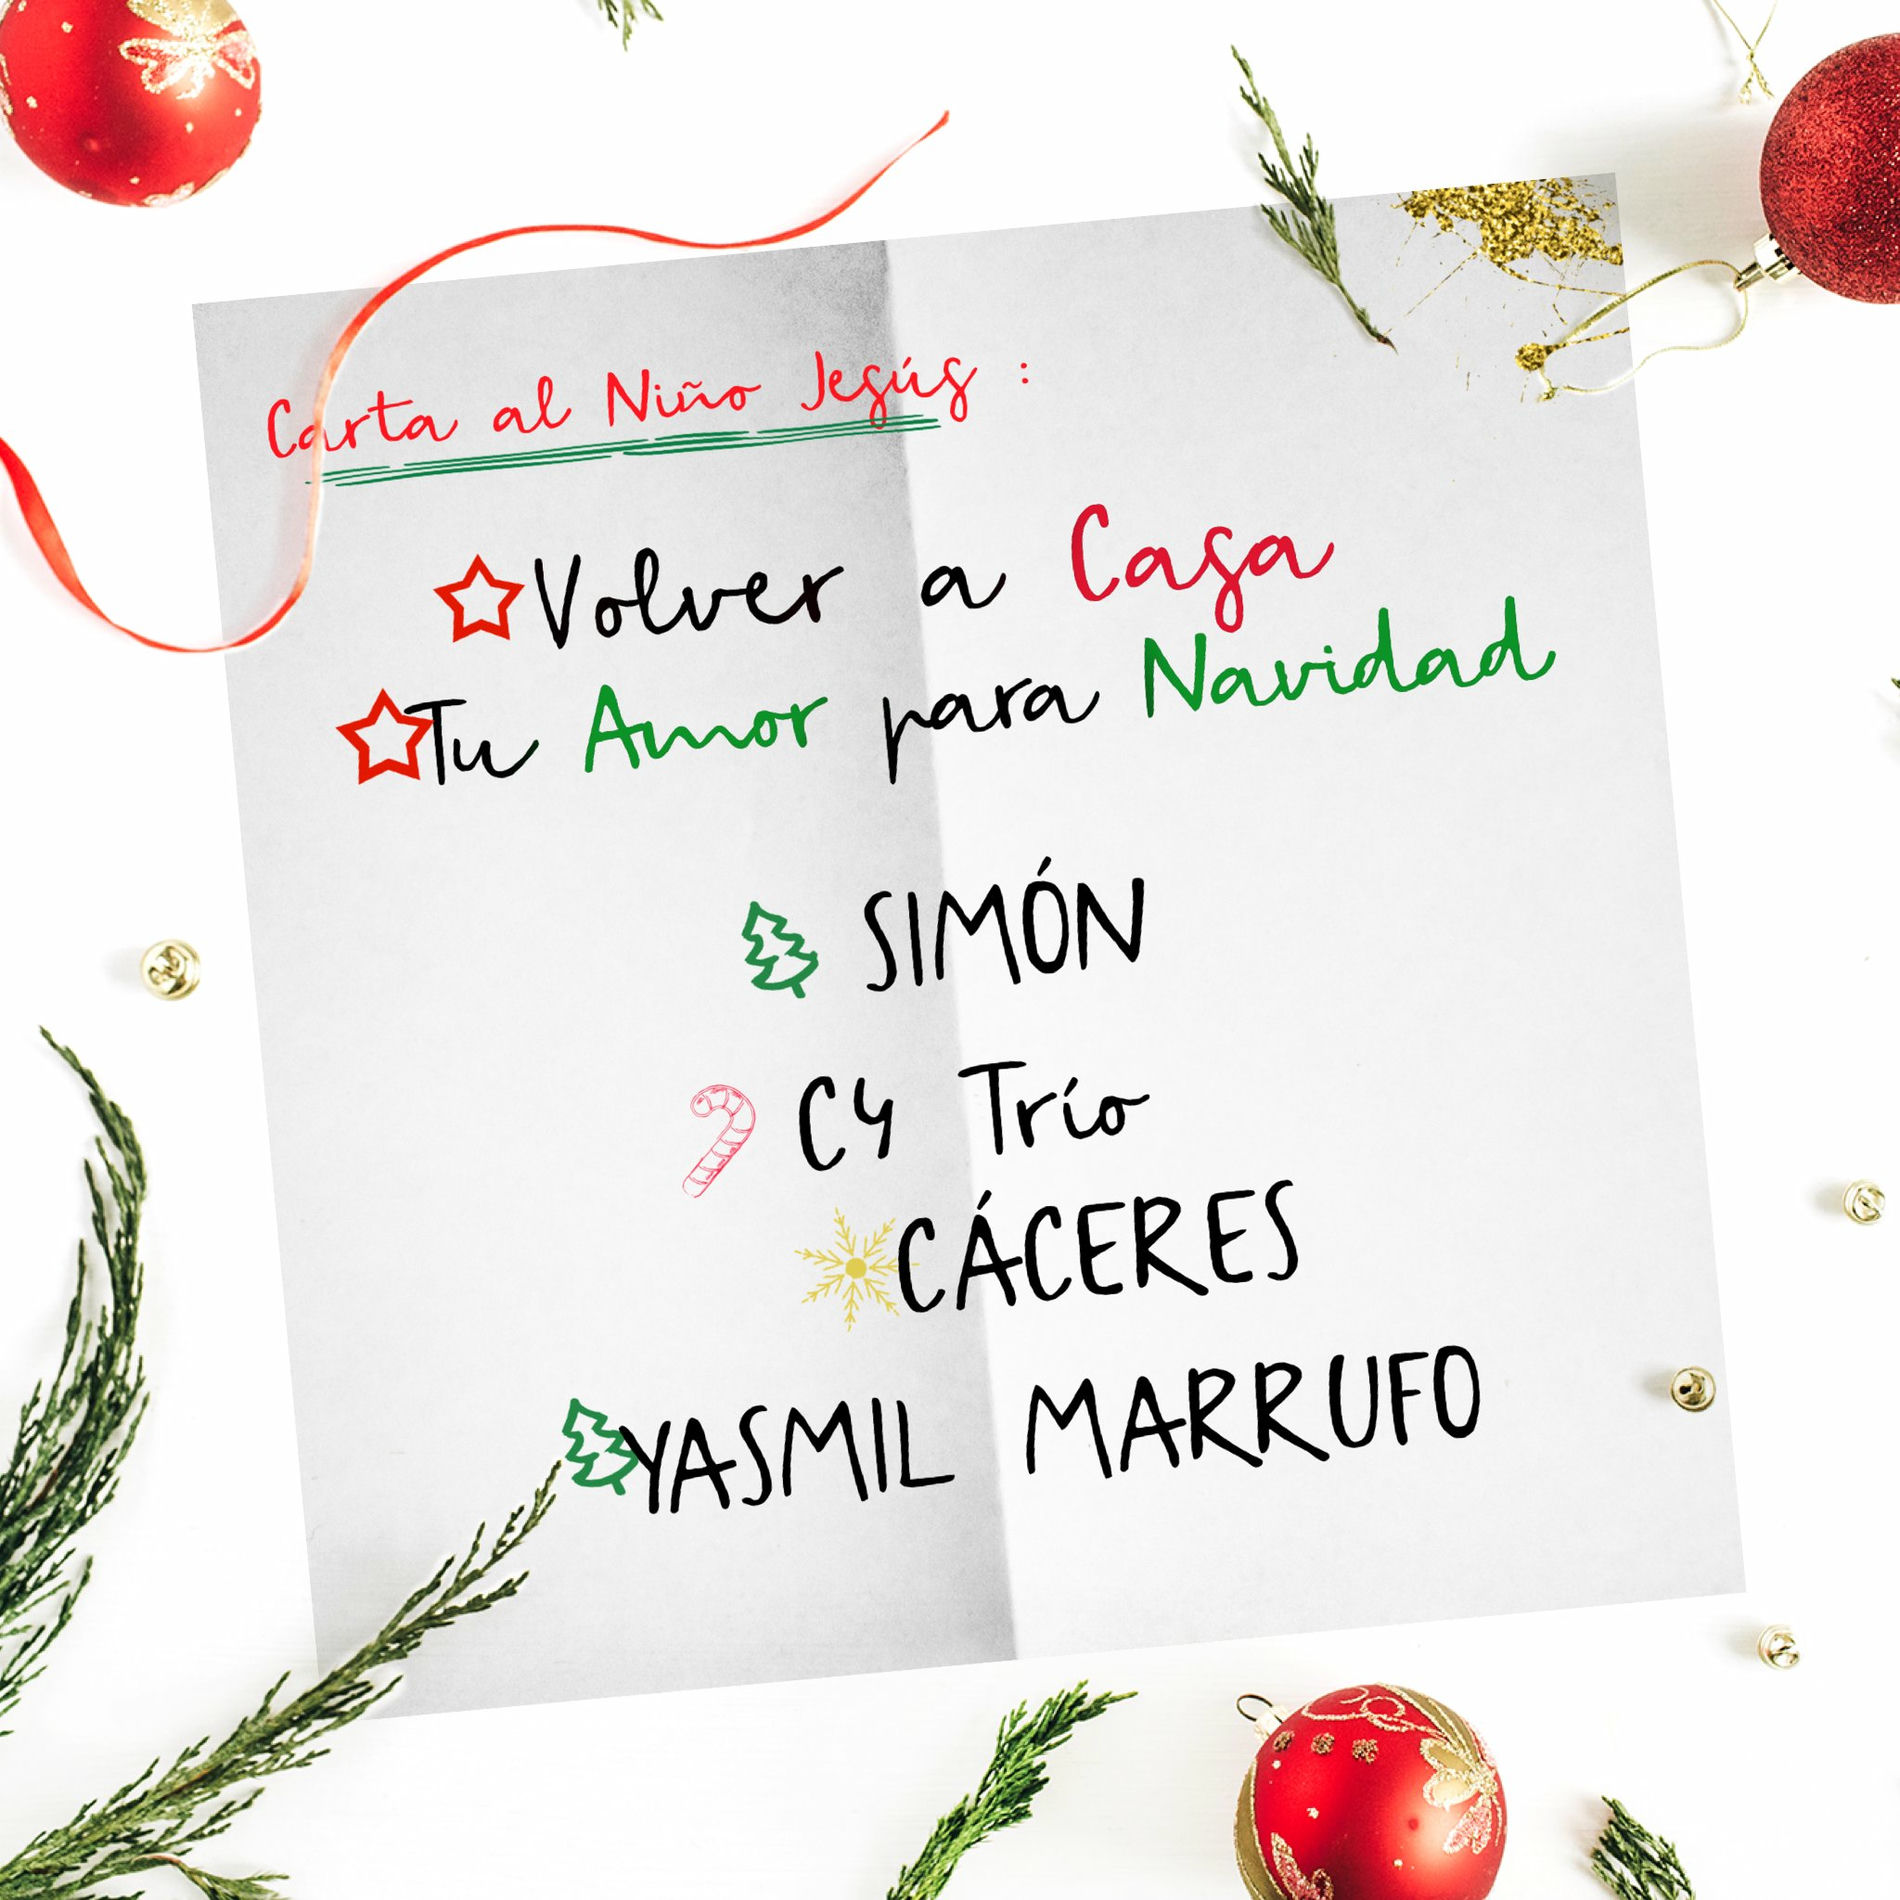 Carta al Niño Jesús :
Volver a Casa
Tu Amor para Navidad
SIMÓN
C4 Trío
CÁCERES
YASMIL MARRUFO